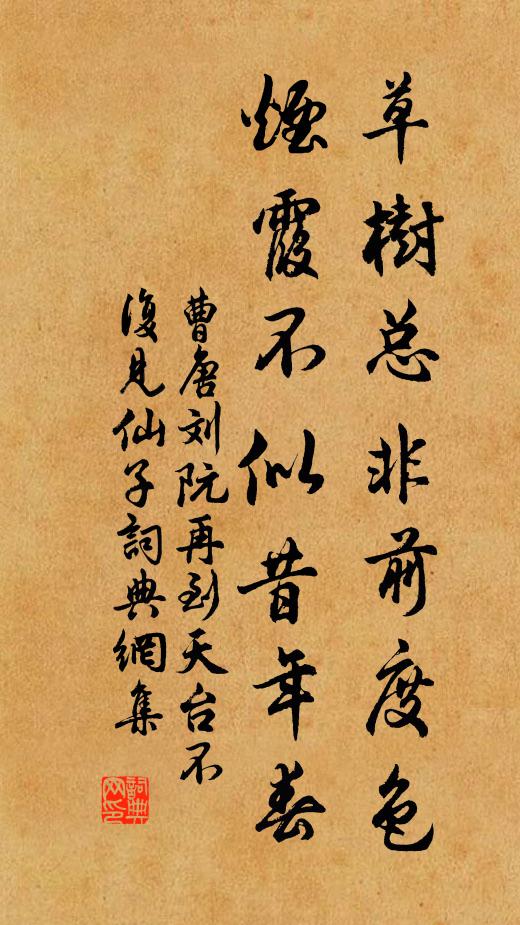 草樹总非前度色
煙霞不似昔年春
曹唐刘阮再到天台不
復見仙子詞典網集
詞典
网印